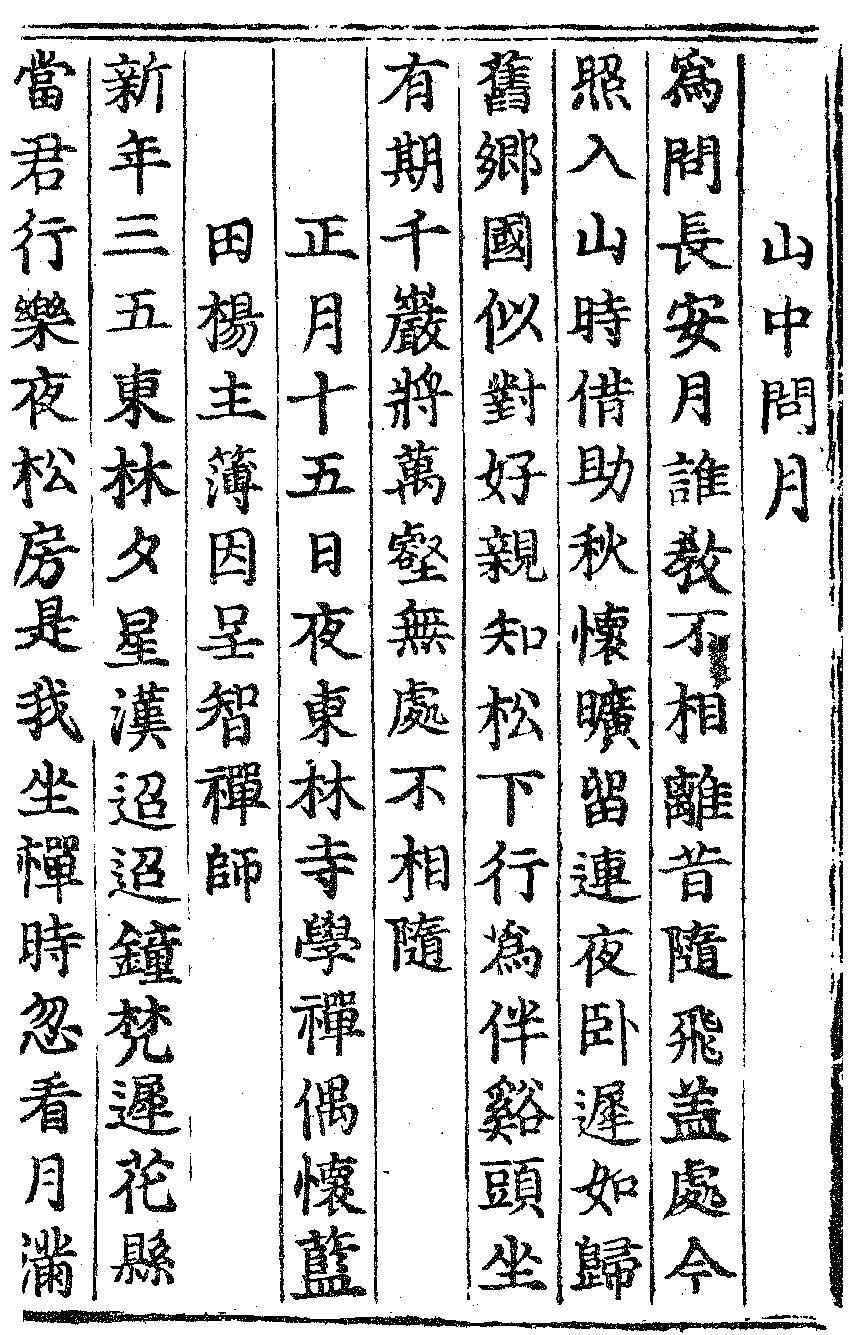 山中問月
爲問長安月誰教不相離昔隨飛盖處今
照入山時借助秋懷曠留連夜卧遲如歸
舊鄉國似對好親知松下行爲伴谿頭坐
有期千巖將萬壑無處不相隨
正月十五日夜東林寺學禪偶懷藍
田楊主簿因呈智禪師
新年三五東林夕星漢迢迢鐘梵遲花縣
當君行樂夜松房是我坐禪時忽看月滿